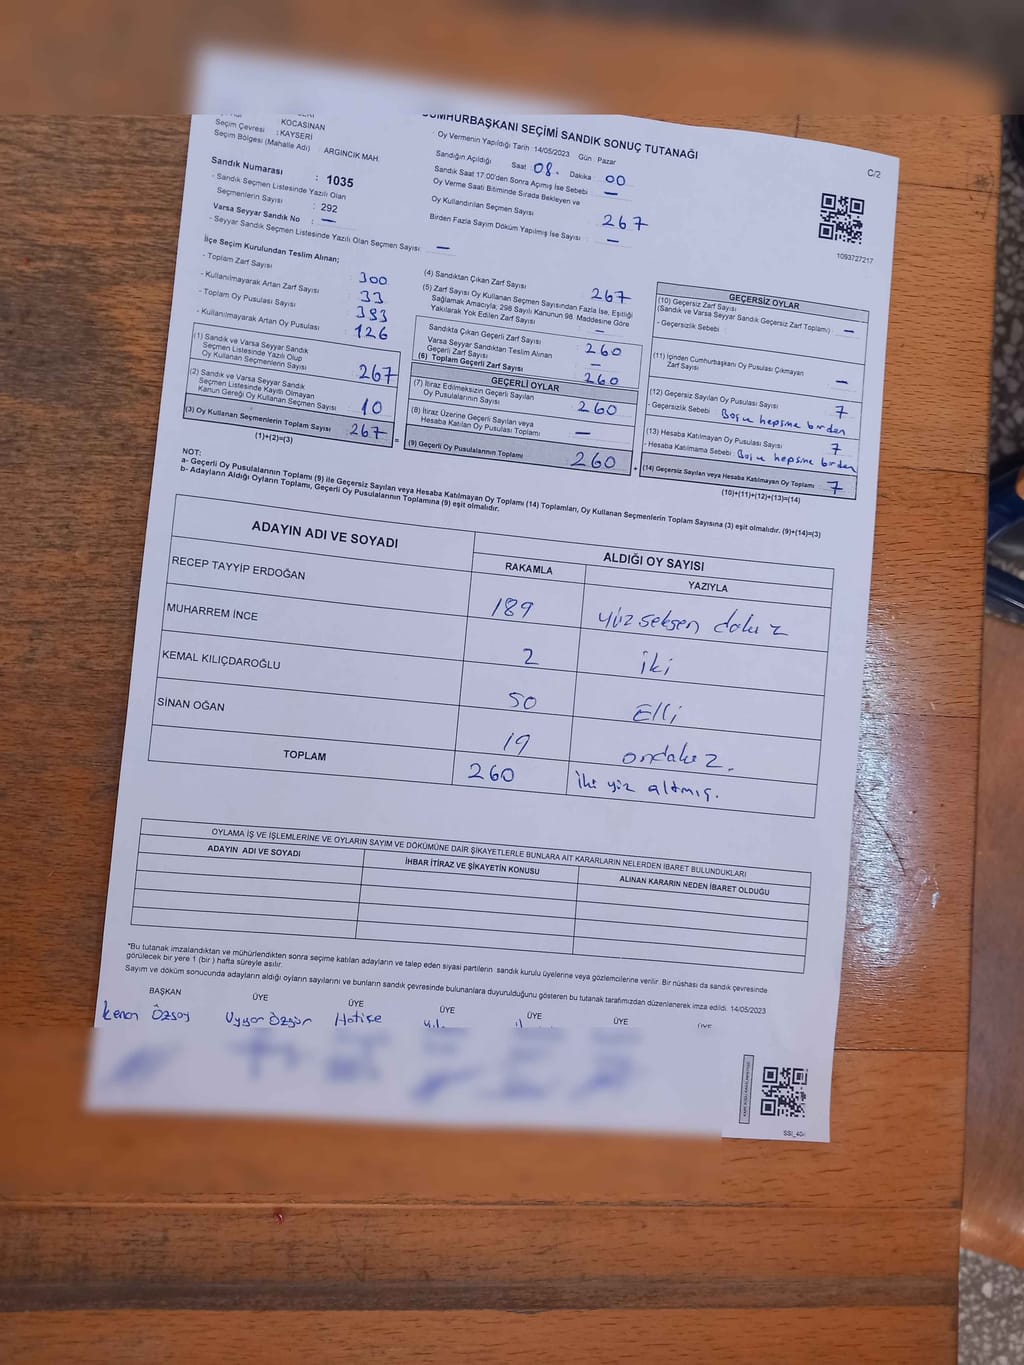 CUMHURBAŞKANI SEÇİMİ SANDIK SONUÇ TUTANAĞI
C/2
KOCASİNAN
Seçim Çevresi : KAYSERİ
Seçim Bölgesi (Mahalle Adı) : ARGINCIK MAH.
Sandık Numarası : 1035
- Sandık Seçmen Listesinde Yazılı Olan
Seçmenlerin Sayısı : 292
Varsa Seyyar Sandık No : —
- Seyyar Sandık Seçmen Listesinde Yazılı Olan Seçmen Sayısı: —
Oy Vermenin Yapıldığı Tarih 14/05/2023 Gün Pazar
Sandığın Açıldığı Saat 08. Dakika 00
Sandık Saat 17:00'den Sonra Açımış İse Sebebi —
Oy Verme Saati Bitiminde Sırada Bekleyen ve
Oy Kullandırılan Seçmen Sayısı : 267
Birden Fazla Sayım Döküm Yapılmış İse Sayısı : —
1093727217
İlçe Seçim Kurulundan Teslim Alınan;
- Toplam Zarf Sayısı : 300
- Kullanılmayarak Artan Zarf Sayısı : 33
- Toplam Oy Pusulası Sayısı : 393
- Kullanılmayarak Artan Oy Pusulası : 126
(1) Sandık ve Varsa Seyyar Sandık
Seçmen Listesinde Yazılı Olup
Oy Kullanan Seçmenlerin Sayısı : 267
(2) Sandık ve Varsa Seyyar Sandık
Seçmen Listesinde Kayıtlı Olmayan
Kanun Gereği Oy Kullanan Seçmen Sayısı : 10
(3) Oy Kullanan Seçmenlerin Toplam Sayısı : 267
(1)+(2)=(3)
(4) Sandıktan Çıkan Zarf Sayısı : 267
(5) Zarf Sayısı Oy Kullanan Seçmen Sayısından Fazla İse, Eşitliği
Sağlamak Amacıyla; 298 Sayılı Kanunun 98. Maddesine Göre
Yakılarak Yok Edilen Zarf Sayısı : —
Sandıkta Çıkan Geçerli Zarf Sayısı : 260
Varsa Seyyar Sandıktan Teslim Alınan
Geçerli Zarf Sayısı : —
(6) Toplam Geçerli Zarf Sayısı : 260
GEÇERLİ OYLAR
(7) İtiraz Edilmeksizin Geçerli Sayılan
Oy Pusulalarının Sayısı : 260
(8) İtiraz Üzerine Geçerli Sayılan veya
Hesaba Katılan Oy Pusulası Toplamı : —
= (9) Geçerli Oy Pusulalarının Toplamı : 260
GEÇERSİZ OYLAR
(10) Geçersiz Zarf Sayısı
(Sandık ve Varsa Seyyar Sandık Geçersiz Zarf Toplamı) : —
- Geçersizlik Sebebi :
(11) İçinden Cumhurbaşkanı Oy Pusulası Çıkmayan
Zarf Sayısı : —
(12) Geçersiz Sayılan Oy Pusulası Sayısı : 7
- Geçersizlik Sebebi : Boşu hepsine birden
(13) Hesaba Katılmayan Oy Pusulası Sayısı : 7
- Hesaba Katılmama Sebebi : Boşu hepsine birden
+ (14) Geçersiz Sayılan veya Hesaba Katılmayan Oy Toplamı : 7
(10)+(11)+(12)+(13)=(14)
NOT:
a- Geçerli Oy Pusulalarının Toplamı (9) ile Geçersiz Sayılan veya Hesaba Katılmayan Oy Toplamı (14) Toplamları, Oy Kullanan Seçmenlerin Toplam Sayısına (3) eşit olmalıdır. (9)+(14)=(3)
b- Adayların Aldığı Oyların Toplamı, Geçerli Oy Pusulalarının Toplamına (9) eşit olmalıdır.
ADAYIN ADI VE SOYADI
ALDIĞI OY SAYISI
RAKAMLA YAZIYLA
RECEP TAYYİP ERDOĞAN 189 yüz seksen dokuz
MUHARREM İNCE 2 iki
KEMAL KILIÇDAROĞLU 50 Elli
SİNAN OĞAN 19 ondokuz.
TOPLAM 260 iki yüz altmış.
OYLAMA İŞ VE İŞLEMLERİNE VE OYLARIN SAYIM VE DÖKÜMÜNE DAİR ŞİKAYETLERLE BUNLARA AİT KARARLARIN NELERDEN İBARET BULUNDUKLARI
ADAYIN ADI VE SOYADI İHBAR İTİRAZ VE ŞİKAYETİN KONUSU ALINAN KARARIN NEDEN İBARET OLDUĞU
*Bu tutanak imzalandıktan ve mühürlendikten sonra seçime katılan adayların ve talep eden siyasi partilerin sandık kurulu üyelerine veya gözlemcilerine verilir. Bir nüshası da sandık çevresinde
görülecek bir yere 1 (bir) hafta süreyle asılır.
Sayım ve döküm sonucunda adayların aldığı oyların sayılarını ve bunların sandık çevresinde bulunanlara duyurulduğunu gösteren bu tutanak tarafımızdan düzenlenerek imza edildi. 14/05/2023
BAŞKAN ÜYE ÜYE ÜYE ÜYE ÜYE ÜYE
Kenan Özsoy Uygar Özgür Hatice